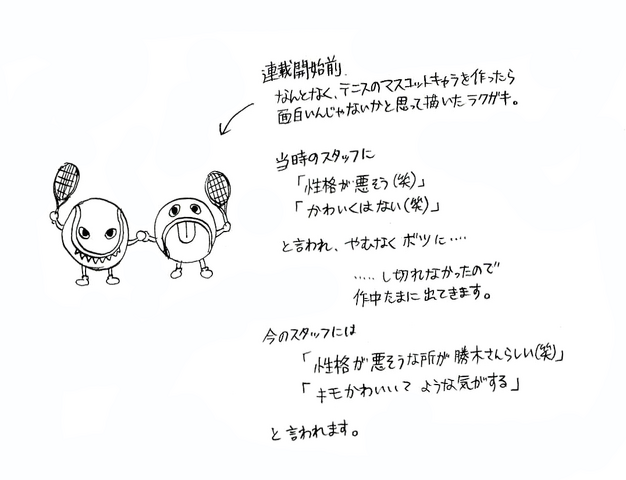 連載開始前、
なんとなく、テニスのマスコットキャラを作ったら
面白いんじゃないかと思って描いたラクガキ。
当時のスタッフに
「性格が悪そう(笑)」
「かわいくはない(笑)」
と言われ、やむなくボツに‥‥
‥‥‥し切れなかったので
作中たまに出てきます。
今のスタッフには
「性格が悪そうな所が勝木さんらしい(笑)」
「キモかわいいて ような気がする」
と言われます。